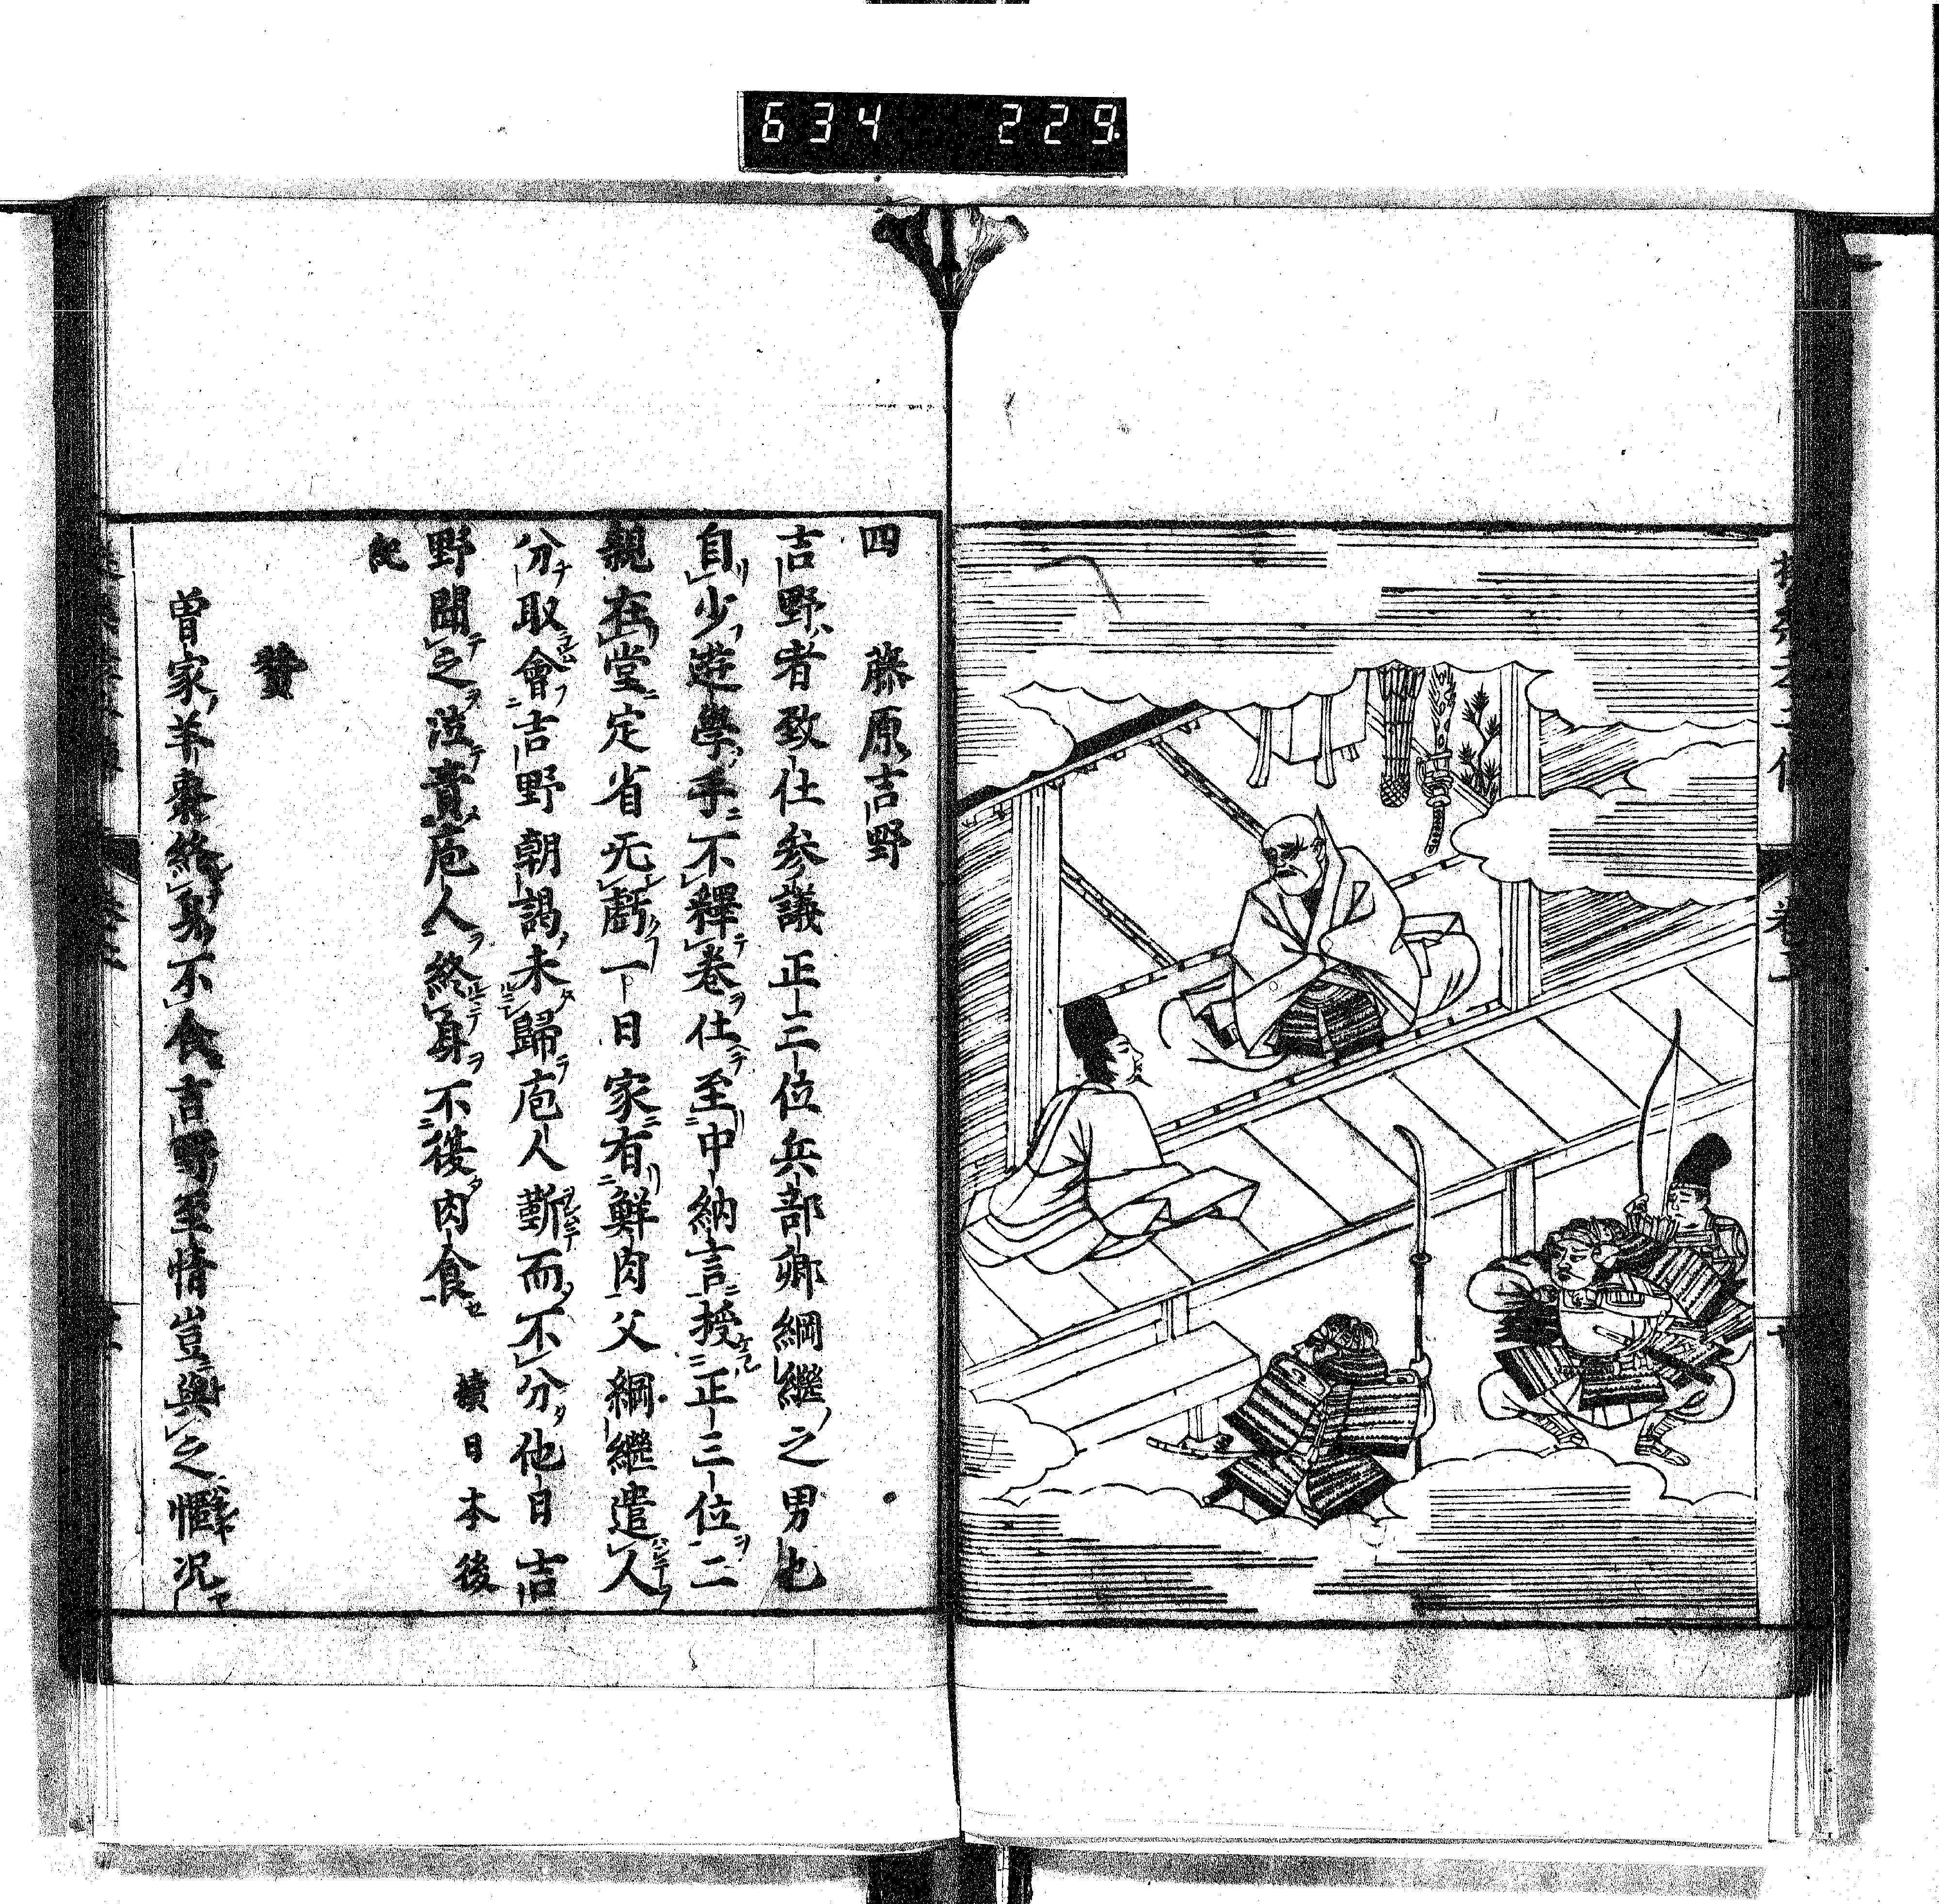 634 229
四 藤原吉野
吉野者致仕参議正三位兵部卿綱継之男也
自少遊學手不釋卷仕至中納言授正三位二
親在堂定省无虧一日家有鮮肉父綱継遣人
分取會吉野朝謁未歸庖人靳而不分他日吉
野聞之泣責庖人終身不復肉食 續日本後
紀
賛
曽家羊棗終身不食吉野至情豈與之懸况